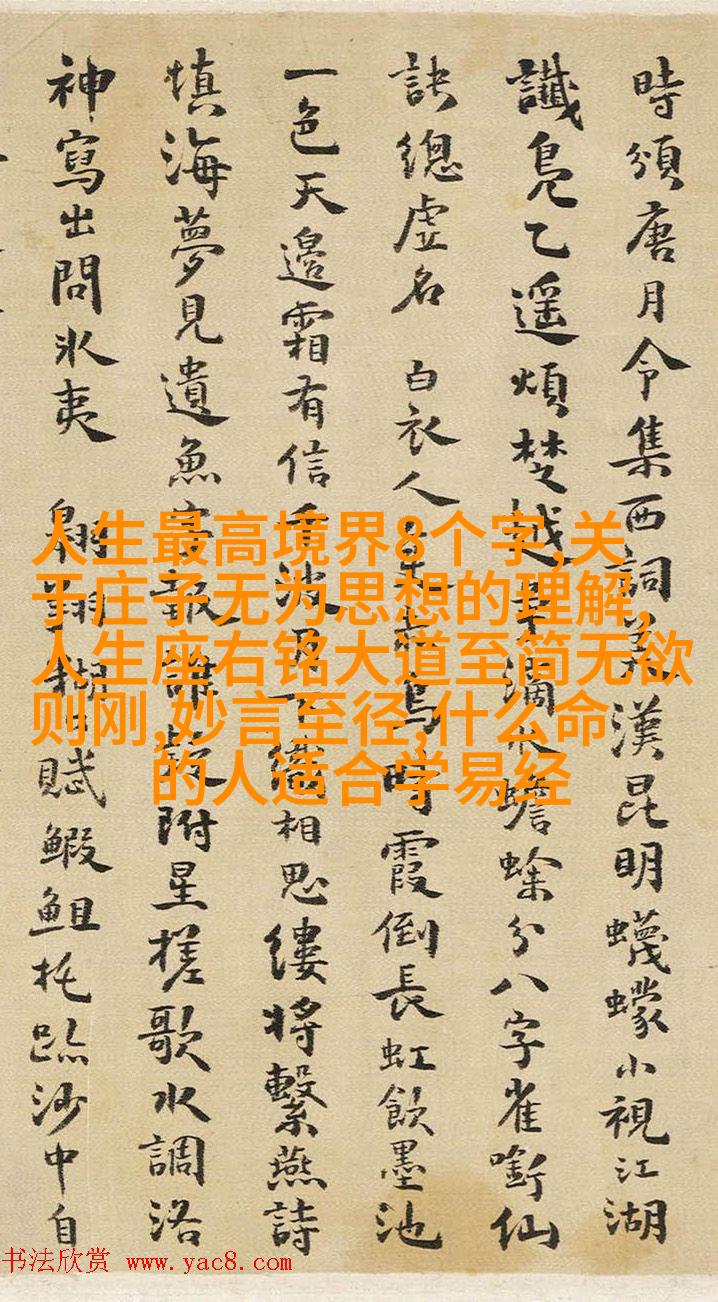 時頒唐月令集西詞美漢昆明蠛蠓小視江湖
讖鳧乙遥煩楚越年滴水蟾蜍分八字雀銜仙
訣總虚名 白衣人 烏時霞倒長虹飲墨池
一色天邊霜有信香波 織相思縷將繫燕詩
填海夢見遺魚寄報 附星槎歌水調洛
神寫出問冰夷 翱翔 賦鰕䱉托跡沙中自
人生最高境界8个字,关
于庄子无为思想的理解,
人生座右铭大道至简无欲
则刚,妙言至径,什么命
的人适合学易经
书法欣赏 www.yac8.com